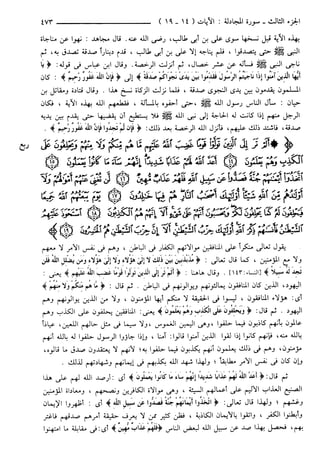 الجزء الثالث - سورة المجادلة : الآيات ( ١٤ - ١٩ ) ٤٧٣
بهذه الآية قبل نسخها سوى علي بن أبي طالب ، رضي الله عنه. قال مجاهد : نهوا عن مناجاة
النبي ﷺ حتى يتصدقوا ، فلم يناجه إلا علي بن أبي طالب ، قدم ديناراً صدقة تصدق به، ثم
ناجى النبي ﷺ فسأله عن عشر خصال، ثم أنزلت الرخصة. وقال ابن عباس في قوله: ﴿ يَا
أَيُّهَا الَّذِينَ آمَنُوا إِذَا نَاجَيْتُمُ الرَّسُولَ فَقَدِّمُوا بَيْنَ يَدَيْ نَجْوَاكُمْ صَدَقَةً ﴾ إلى ﴿ فَإِنَّ اللَّهَ غَفُورٌ رَحِيمٌ ﴾ : كان
المسلمون يقدمون بين يدي النجوى صدقة ، فلما نزلت الزكاة نسخ هذا. وقال قتادة ومقاتل بن
حيان : سأل الناس رسول الله ﷺ ،حتى أحفوه بالمسألة ، فقطعهم الله بهذه الآية ، فكان
الرجل منهم إذا كانت له الحاجة إلى نبي الله ﷺ فلا يستطيع أن يقضيها حتى يقدم بين يديه
صدقة، فاشتد ذلك عليهم، فأنزل الله الرخصة بعد ذلك: ﴿ فَإِنْ لَمْ تَجِدُوا فَإِنَّ اللَّهَ غَفُورٌ رَحِيمٌ ﴾ .
﴿ أَلَمْ تَرَ إِلَى الَّذِينَ تَوَلَّوْا قَوْمًا غَضِبَ اللَّهُ عَلَيْهِم مَّا هُم مِّنكُمْ وَلَا مِنْهُمْ وَيَحْلِفُونَ عَلَى
يقول تعالى منكراً على المنافقين موالاتهم الكفار في الباطن ، وهم في نفس الأمر لا معهم
ولا مع المؤمنين ، كما قال تعالى : ﴿ مُذَبْذَبِينَ بَيْنَ ذَلِكَ لَا إِلَى هَؤُلَاءِ وَلَا إِلَى هَؤُلَاءِ وَمَنْ يُضْلِلِ اللَّهُ فَلَنْ
تَجِدَ لَهُ سَبِيلًا ﴾ [النساء: ١٤٣] . وقال هاهنا : ﴿ أَلَمْ تَرَ إِلَى الَّذِينَ تَوَلَّوْا قَوْمًا غَضِبَ اللَّهُ عَلَيْهِمْ ﴾ يعني :
اليهود، الذين كان المنافقون يمالئونهم ويوالونهم في الباطن . ثم قال : ﴿ مَا هُمْ مِنْكُمْ وَلَا مِنْهُمْ ﴾
أي: هؤلاء المنافقون ، ليسوا في الحقيقة لا منكم أيها المؤمنون ، ولا من الذين يوالونهم وهم
اليهود . ثم قال: ﴿ وَيَحْلِفُونَ عَلَى الْكَذِبِ وَهُمْ يَعْلَمُونَ ﴾ يعني: المنافقين يحلفون على الكذب وهم
عالمون بأنهم كاذبون فيما حلفوا ، وهي اليمين الغموس ،ولا سيما في مثل حالهم اللعين، عياذاً
بالله منه، فإنهم كانوا إذا لقوا الذين آمنوا قالوا: آمنا ، وإذا جاؤوا الرسول حلفوا له بالله أنهم
مؤمنون، وهم في ذلك يعلمون أنهم يكذبون فيما حلفوا به؛ لأنهم لا يعتقدون صدق ما قالوه،
وإن كان في نفس الأمر مطابقاً ؛ ولهذا شهد الله بكذبهم في إيمانهم وشهادتهم لذلك .
ثم قال: ﴿ أَعَدَّ اللَّهُ لَهُمْ عَذَابًا شَدِيدًا إِنَّهُمْ سَاءَ مَا كَانُوا يَعْمَلُونَ ﴾ أي :أرصد الله لهم على هذا
الصنيع العذاب الأليم على أعمالهم السيئة ، وهي موالاة الكافرين ونصحهم ، ومعاداة المؤمنين
وغشهم ؛ ولهذا قال تعالى: ﴿ اتَّخَذُوا أَيْمَانَهُمْ جُنَّةً فَصَدُّوا عَنْ سَبِيلِ اللَّهِ ﴾ أي : أظهروا الإيمان
وأبطنوا الكفر ، واتقوا بالأيمان الكاذبة ، فظن كثير ممن لا يعرف حقيقة أمرهم صدقهم فاغتر
بهم، فحصل بهذا صد عن سبيل الله لبعض الناس ﴿ فَلَهُمْ عَذَابٌ مُهِينٌ ﴾ أي: في مقابلة ما امتهنوا